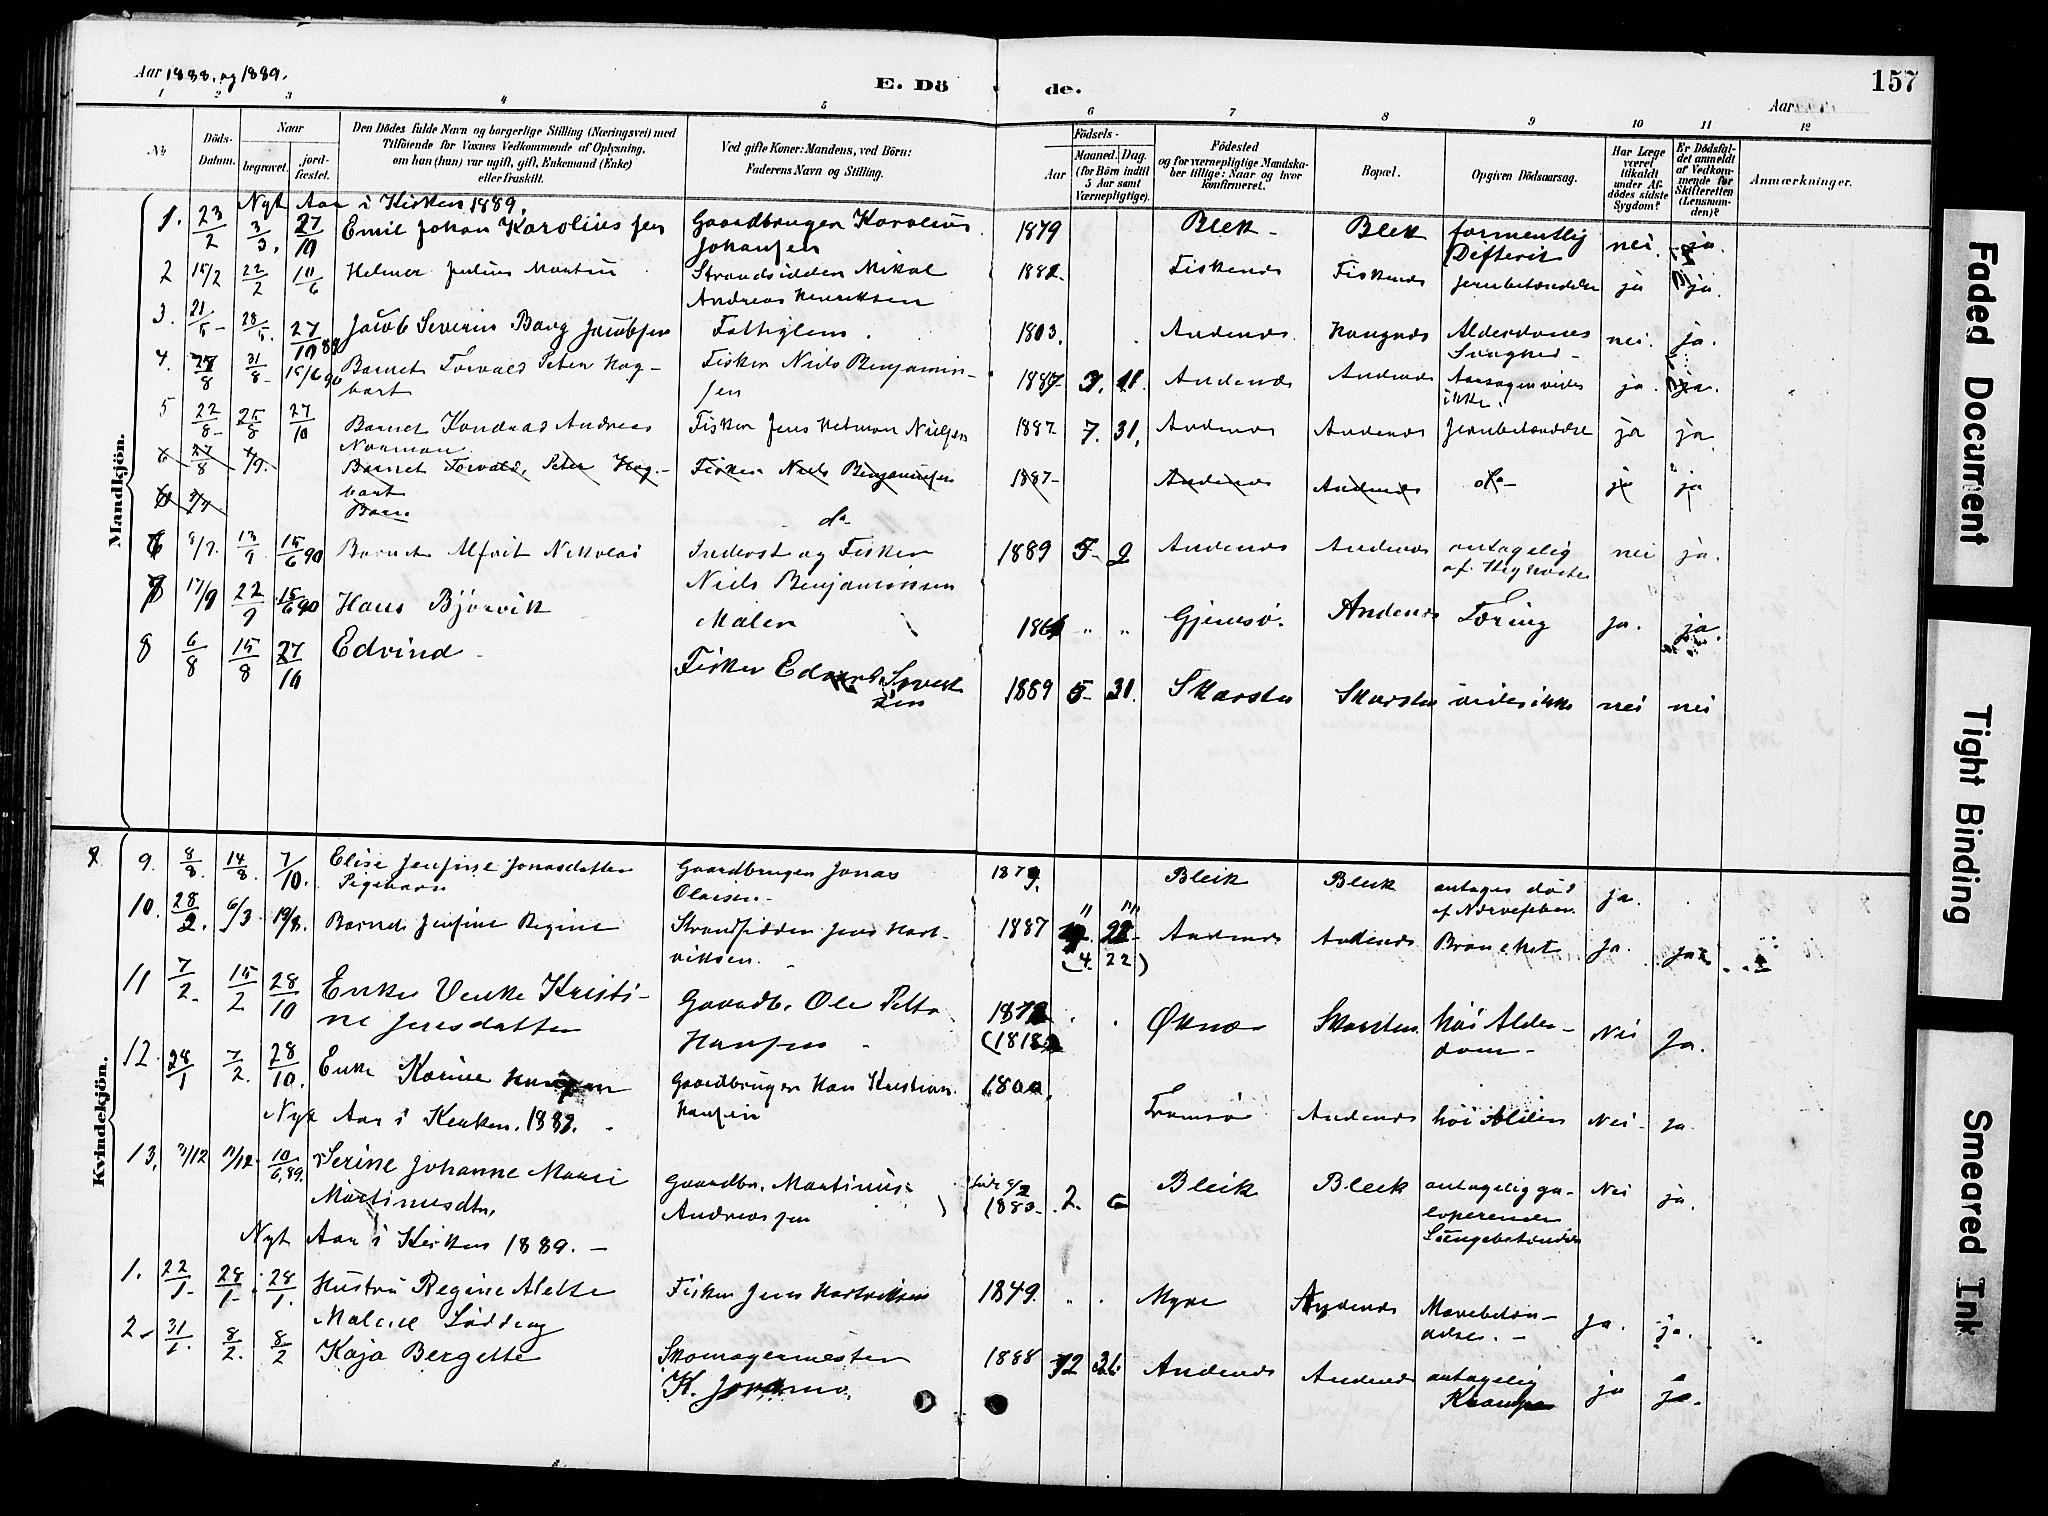 Aar 1888. og 1889.
E. Dö
de.
Aar
157
1 2 3 4 5 6 7 8 9 10 11 12
No
Döds-Datum.
Naar
begravet.
jord-fæstet.
Den Dödes fulde Navn og borgerlige Stilling (Næringsvei) med
Tilföiende for Voxnes Vedkommende af Oplysning,
om han (hun) var ugift, gift, Enkemand (Enke)
eller fraskilt.
Ved gifte Koner: Mandens, ved Börn:
Faderens Navn og Stilling.
Födsels-
Aar
Maaned. Dag.
(for Börn indtil
5 Aar samt
Værnepligtige).
Födested
og for værnepligtige Mandska-
ber tillige: Naar og hvor
konfirmeret.
Bopæl.
Opgiven Dödsaarsag.
Har Læge
været
tilkaldt
under Af-
dödes sidste
Sygdom?
Er Dödsfal-
det anmeldt
af Vedkom-
mende for
Skifteretten
(Lensman-
den)?
Anmærkninger.
Mandkjön.
Nyt Aar i Kirken 1889.
1. 23/2 3/3. 27/10 Emil Johan Karolius Jen Gaardbruger Karolius 1879 Bleik Bleik formentlig nei. ja.
Johansen Difterit
2 15/2 22/2 10/6 Helmer Julius Martin Strandsidder Nikol 1882 Fiskenes Fiskenes ja ja.
Andreas Henriksen
3. 21/5 28/5. 27/10 89 Jacob Severin Bang Jacobsen Fattiglem. 1803. Andenes Haugnes Alderdoms nei. ja.
Svaghed
4. 27/8 31/8 15/6 90 Barnet Torvald Peter Hag- Fisker Niels Benjamin- 1887 Andenes Andenes Aarsagen vides ja. ja.
bart sen ikke.
5 22/8 25/8 27/10 Barnet Kondrad Andreas Fisker Jens Helmer Nielsen 1887 7. 31. Andenes Andenes ja ja
Norman
6 27/8 Barnet Torvald, Peter Hag- Fisker Niels Benjaminsen 1887 Andenes Andenes do ja ja
bart
Barn do
6 8/9 13/9 15/6 90 Barnet Alfrit Nikolai Inderst og Fisker 1889 5 2 Andenes Andenes antagelig nei ja.
Niels Benjaminsen af Kighoste
7 17/9 22/9 15/6 90 Hans Bjørvik Maler " " Gjemsø. Andenes Tæring ja. ja.
8 6/8 15/8 27/10 Edvind Fisker Edvard Sivert 1889 5 31. Skarsten Skarsten vides ikke nei nei
sen
Kvindekjön.
9. 8/8. 14/8. 7/10. Elise Jensine Jonasdatter Gaardbruger Jonas 1879. Bleik Bleik antages død ja.
Pigebarn Olaisen. af Nervefeber
10. 28/2. 6/3 19/8. Barnet Jensine Regine Strandsidder Jens Hart- 1887 Andenes Andenes Bronchet ja. ja
viksen. (4. 22)
11 7/2 15/2 28/10 Enke Venke Kristi- Gaardb. Ole Petter Øksnes Skarsten høi Alder- Nei Ja.
ne Jensdatter Hansen dom
12. 28/1 7/2. 28/10. Enke Karine Gaardbruger Hans Kristian 1800. Tromsø Andenes høi Alder Nei. ja.
Nyt Aar i Kirken. 1887. Hansen
13. 3/12 11/12 10/6.89. Serine Johanne Marie Gaardbr. Martinus 1880. 2. Bleik Bleik antagelig ga- Nei ja.
Martinusdtr. Andreassen loperende
Lungebetændelse
Nyt Aar i Kirken 1889.
1. 22/1 28/1 28/1. Hustru Regine Alette Fisker Jens Hartviksen 1849. Myre Andenes Mavebetæn- ja. ja.
delse.
2 31/1. 8/2. 8/2 Kaja Bergette Skomagermester 1888 12 26. Andenes Andenes antagelig ja ja.
K. Krampe
Faded Document
Tight Binding
Smeared Ink